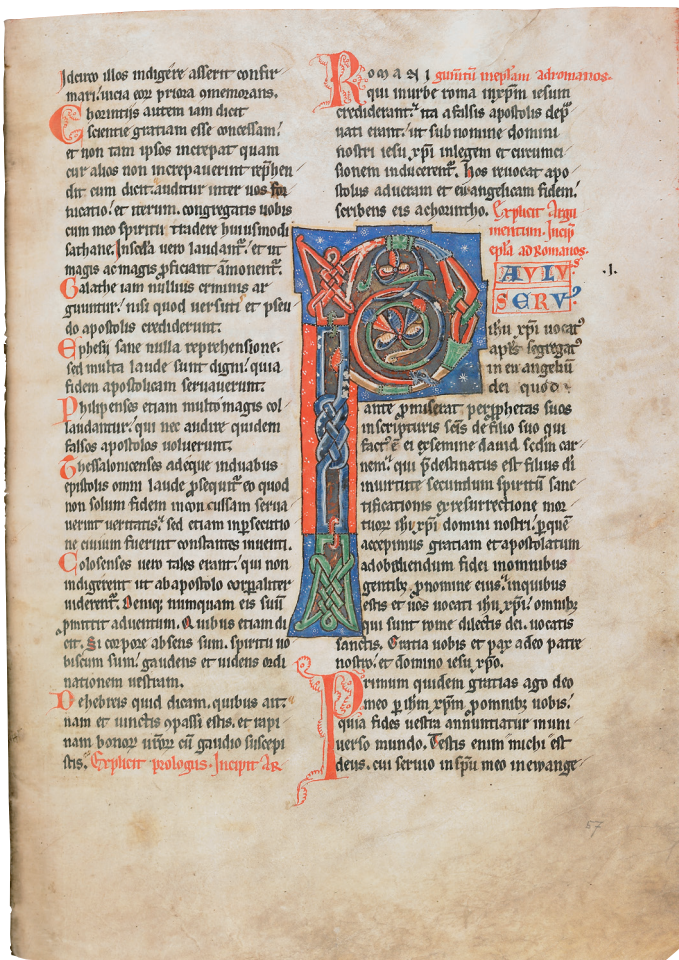 Idcirco illos indigere asserit confir
mari. vicia eor priora omemorans.
Chorintiis autem iam dicit
scientie gratiam esse concessam.
et non tam ipsos increpat quam
cur alios non increpauerint rephen
dit cum dicit. auditur inter uos for
nicatio. et iterum. congregatis uobis
cum meo spiritu tradere huiusmodi
sathane. In secda uero laudant. et ut
magis ac magis pficiant āmonent.
Galathe iam nullius criminis ar
guuntur. nisi quod versuti et pseu
do apostolis crediderunt.
Ephesii sane nulla reprehensione.
sed multa laude sunt digni. quia
fidem apostolicam seruauerunt.
Philipenses etiam multo magis col
laudantur. qui nec audire quidem
falsos apostolos uoluerunt.
Thessalonicenses adeque in duabus
epistolis omni laude psequit eo quod
non solum fidem inconcussam serua
uerint ueritatis. sed etiam in psecutio
ne ciuium fuerint constantes inuenti.
Colosenses uero tales erant. qui non
indigerent ut ab apostolo corpaliter
uiderent. Deniq numquam eis suū
pmittit aduentum. Quibus etiam di
cit. Si corpore absens sum. spiritu uo
biscum sum. gaudens et uidens ordi
nationem uestram.
De hebreis quid dicam. quibus ait.
nam et uinctis opassi estis. et rapi
nam bonor uror cū gaudio suscepi
stis. Explicit prologus. Incipit Ar
Romani gumtū in eplam ad romanos.
qui in urbe roma in xpm iesum
crediderant. ita a falsis apostolis dep
uati erant. ut sub nomine domini
nostri iesu xpi in legem et circumci
sionem inducerent. Hos reuocat apo
stolus ad ueram et euangelicam fidem.
scribens eis a chorintho. Explicit Argu
mentum. Incip
epla ad Romanos.
PAULUS .I.
SERVUS
ihu xpi uocat
apls segregat
in euangeliū
dei quod
ante pmiserat per pphetas suos
in scripturis scis de filio suo qui
fact ē ei ex semine dauid scdm car
nem. qui pdestinatus est filius di
in uirtute secundum spiritū sanc
tificationis ex resurrectione mor
tuor ihu xpi domini nostri. p quē
accepimus gratiam et apostolatum
ad obediendum fidei in omnibus
gentib pro nomine eius. in quibus
estis et uos uocati ihu xpi. omnib
qui sunt rome dilectis dei. uocatis
sanctis. Gratia uobis et pax a deo patre
nostro. et domino iesu xpo.
Primum quidem gratias ago deo
meo p ihm xpm p omnib uobis.
quia fides uestra annuntiatur in uni
uerso mundo. Testis enim michi est
deus. cui seruio in spu meo in ewange
87